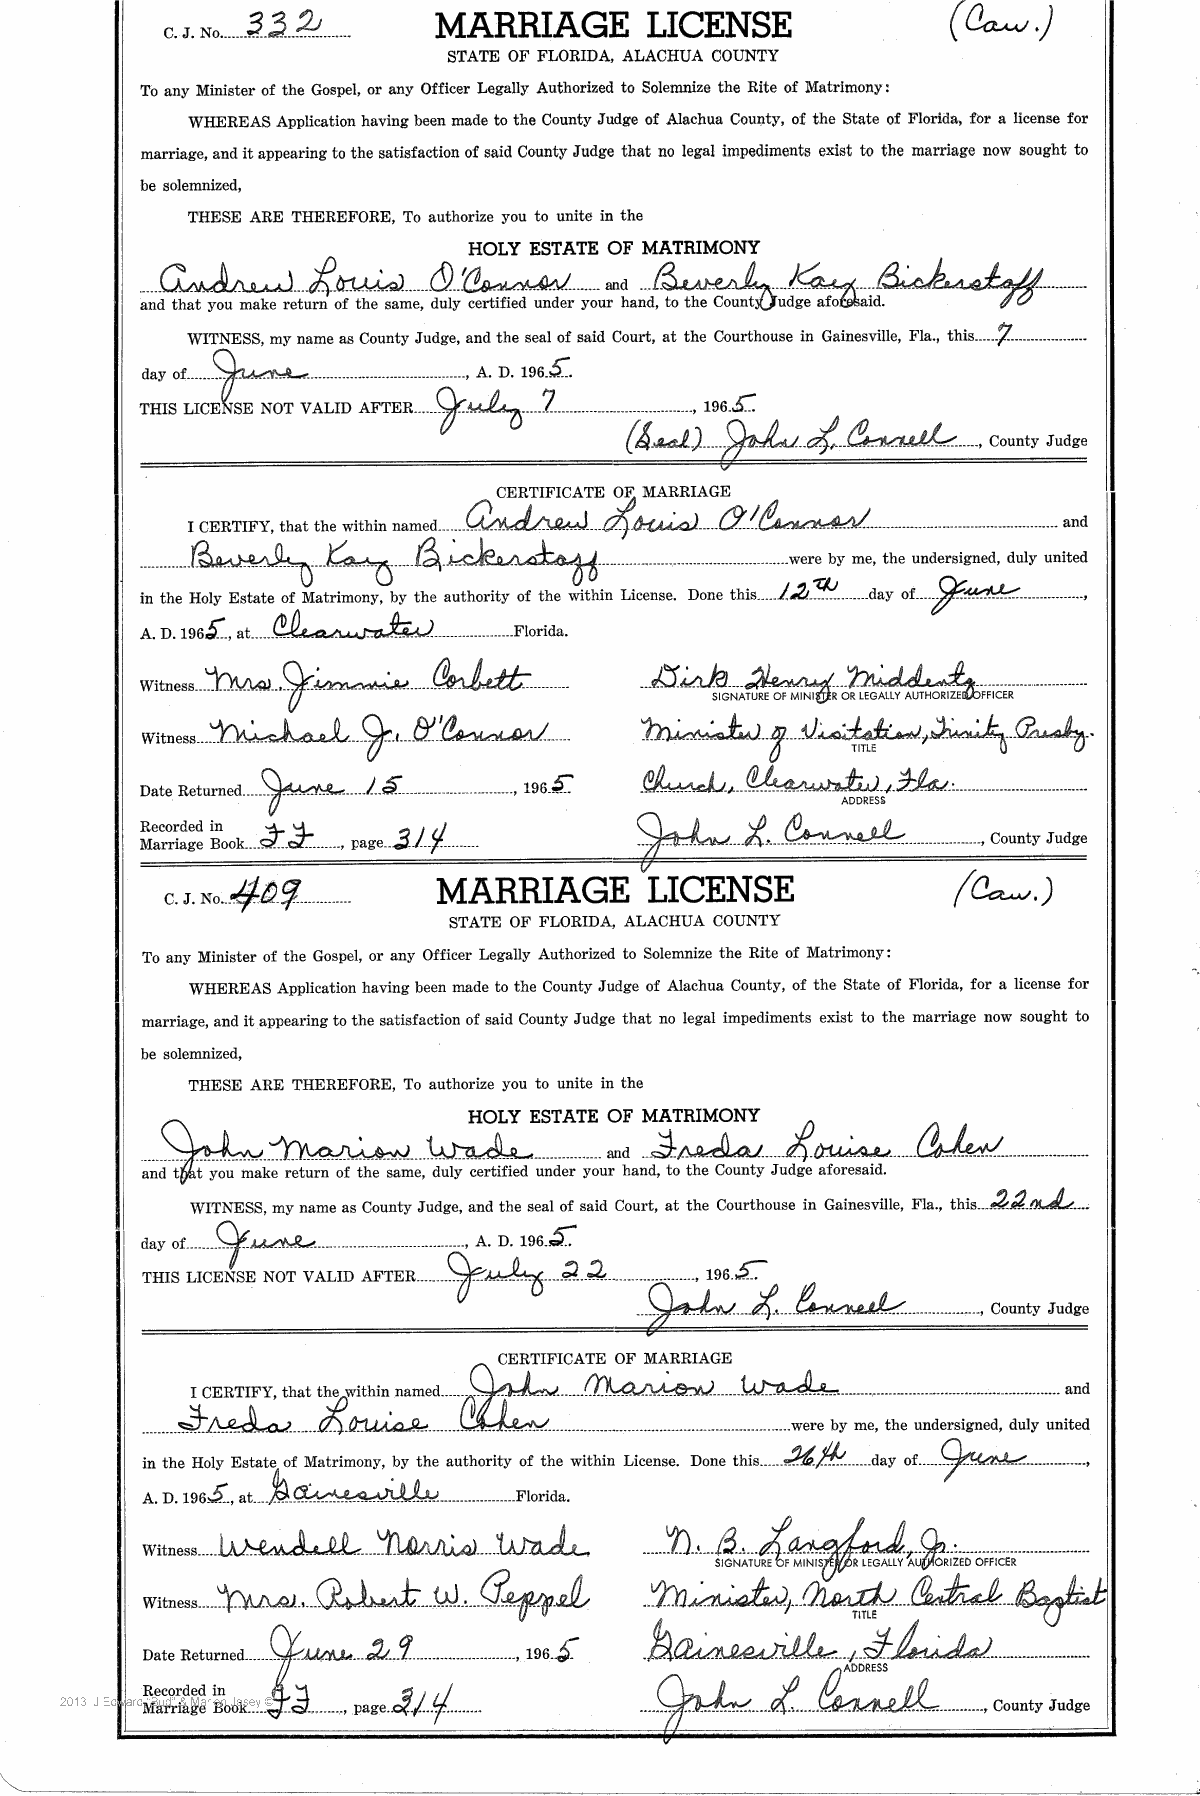 C. J. No. 332 MARRIAGE LICENSE (Cau.)
STATE OF FLORIDA, ALACHUA COUNTY
To any Minister of the Gospel, or any Officer Legally Authorized to Solemnize the Rite of Matrimony:
WHEREAS Application having been made to the County Judge of Alachua County, of the State of Florida, for a license for
marriage, and it appearing to the satisfaction of said County Judge that no legal impediments exist to the marriage now sought to
be solemnized,
THESE ARE THEREFORE, To authorize you to unite in the
HOLY ESTATE OF MATRIMONY
Andrew Louis O'Connor and Beverly Kay Bickerstaff
and that you make return of the same, duly certified under your hand, to the County Judge aforesaid.
WITNESS, my name as County Judge, and the seal of said Court, at the Courthouse in Gainesville, Fla., this 7
day of June, A. D. 1965.
THIS LICENSE NOT VALID AFTER July 7, 1965.
(Seal) John L. Connell, County Judge
CERTIFICATE OF MARRIAGE
I CERTIFY, that the within named Andrew Louis O'Connor and
Beverly Kay Bickerstaff were by me, the undersigned, duly united
in the Holy Estate of Matrimony, by the authority of the within License. Done this 12th day of June,
A. D. 1965, at Clearwater Florida.
Witness Mrs. Jimmie Corbett Dirk Henry Middentz
SIGNATURE OF MINISTER OR LEGALLY AUTHORIZED OFFICER
Witness Michael J. O'Connor Minister of Visitation, Trinity Presby.
TITLE
Date Returned June 15, 1965 Church, Clearwater, Fla.
ADDRESS
Recorded in
Marriage Book FF, page 314 John L. Connell, County Judge
C. J. No. 409 MARRIAGE LICENSE (Cau.)
STATE OF FLORIDA, ALACHUA COUNTY
To any Minister of the Gospel, or any Officer Legally Authorized to Solemnize the Rite of Matrimony:
WHEREAS Application having been made to the County Judge of Alachua County, of the State of Florida, for a license for
marriage, and it appearing to the satisfaction of said County Judge that no legal impediments exist to the marriage now sought to
be solemnized,
THESE ARE THEREFORE, To authorize you to unite in the
HOLY ESTATE OF MATRIMONY
John Marion Wade and Freda Louise Cohen
and that you make return of the same, duly certified under your hand, to the County Judge aforesaid.
WITNESS, my name as County Judge, and the seal of said Court, at the Courthouse in Gainesville, Fla., this 22nd
day of June, A. D. 1965.
THIS LICENSE NOT VALID AFTER July 22, 1965.
John L. Connell, County Judge
CERTIFICATE OF MARRIAGE
I CERTIFY, that the within named John Marion Wade and
Freda Louise Cohen were by me, the undersigned, duly united
in the Holy Estate of Matrimony, by the authority of the within License. Done this 26th day of June,
A. D. 1965, at Gainesville Florida.
Witness Wendell Norris Wade N. B. Langford, Jr.
SIGNATURE OF MINISTER OR LEGALLY AUTHORIZED OFFICER
Witness Mrs. Robert W. Peppel Minister, North Central Baptist
TITLE
Date Returned June 29, 1965 Gainesville, Florida
ADDRESS
Recorded in
Marriage Book FF, page 314 John L. Connell, County Judge
2013 J Edward "Bud" & Marion